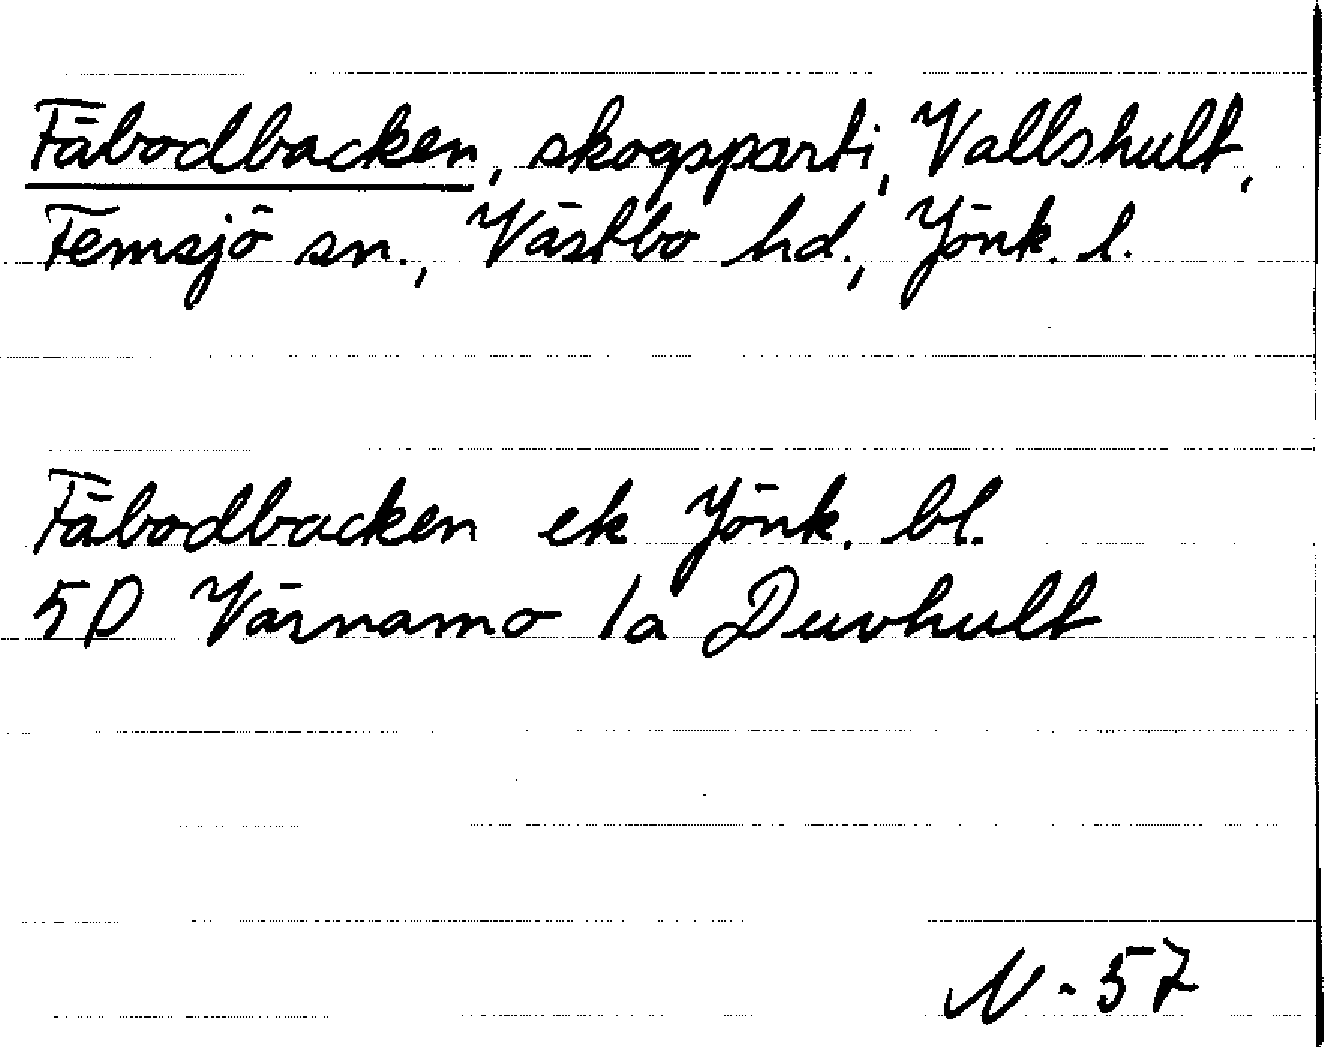 Fäbodbacken, skogsparti, Vallshult,
Femsjö sn., Västbo hd., Jönk. l.
Fäbodbacken ek Jönk. bl.
5D Värnamo 1a Duvhult
N-57